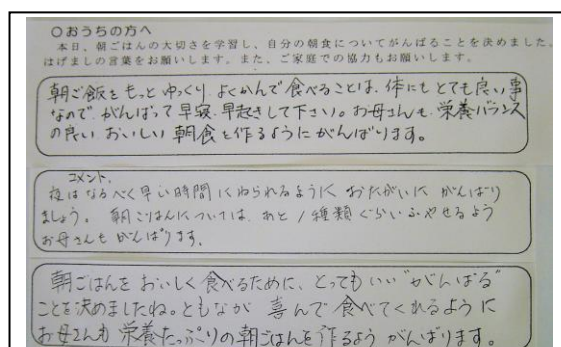 ○おうちの方へ
本日、朝ごはんの大切さを学習し、自分の朝食についてがんばることを決めました。
はげましの言葉をお願いします。また、ご家庭での協力もお願いします。
朝ご飯をもっとゆっくり、よくかんで食べることは、体にもとても良い事
なので、がんばって早寝、早起きして下さい。お母さんも、栄養バランス
の良い、おいしい朝食を作るようにがんばります。
コメント.
夜はなるべく早い時間にねられるように おたがいに がんばり
ましょう。 朝ごはんについては、あと1種類ぐらいふやせるよう
お母さんも がんばります。
朝ごはんをおいしく食べるために、とってもいい“がんばる”
ことを決めましたね。ともなが 喜んで食べてくれるように
お母さんも 栄養たっぷりの朝ごはんを作るよう がんばります。